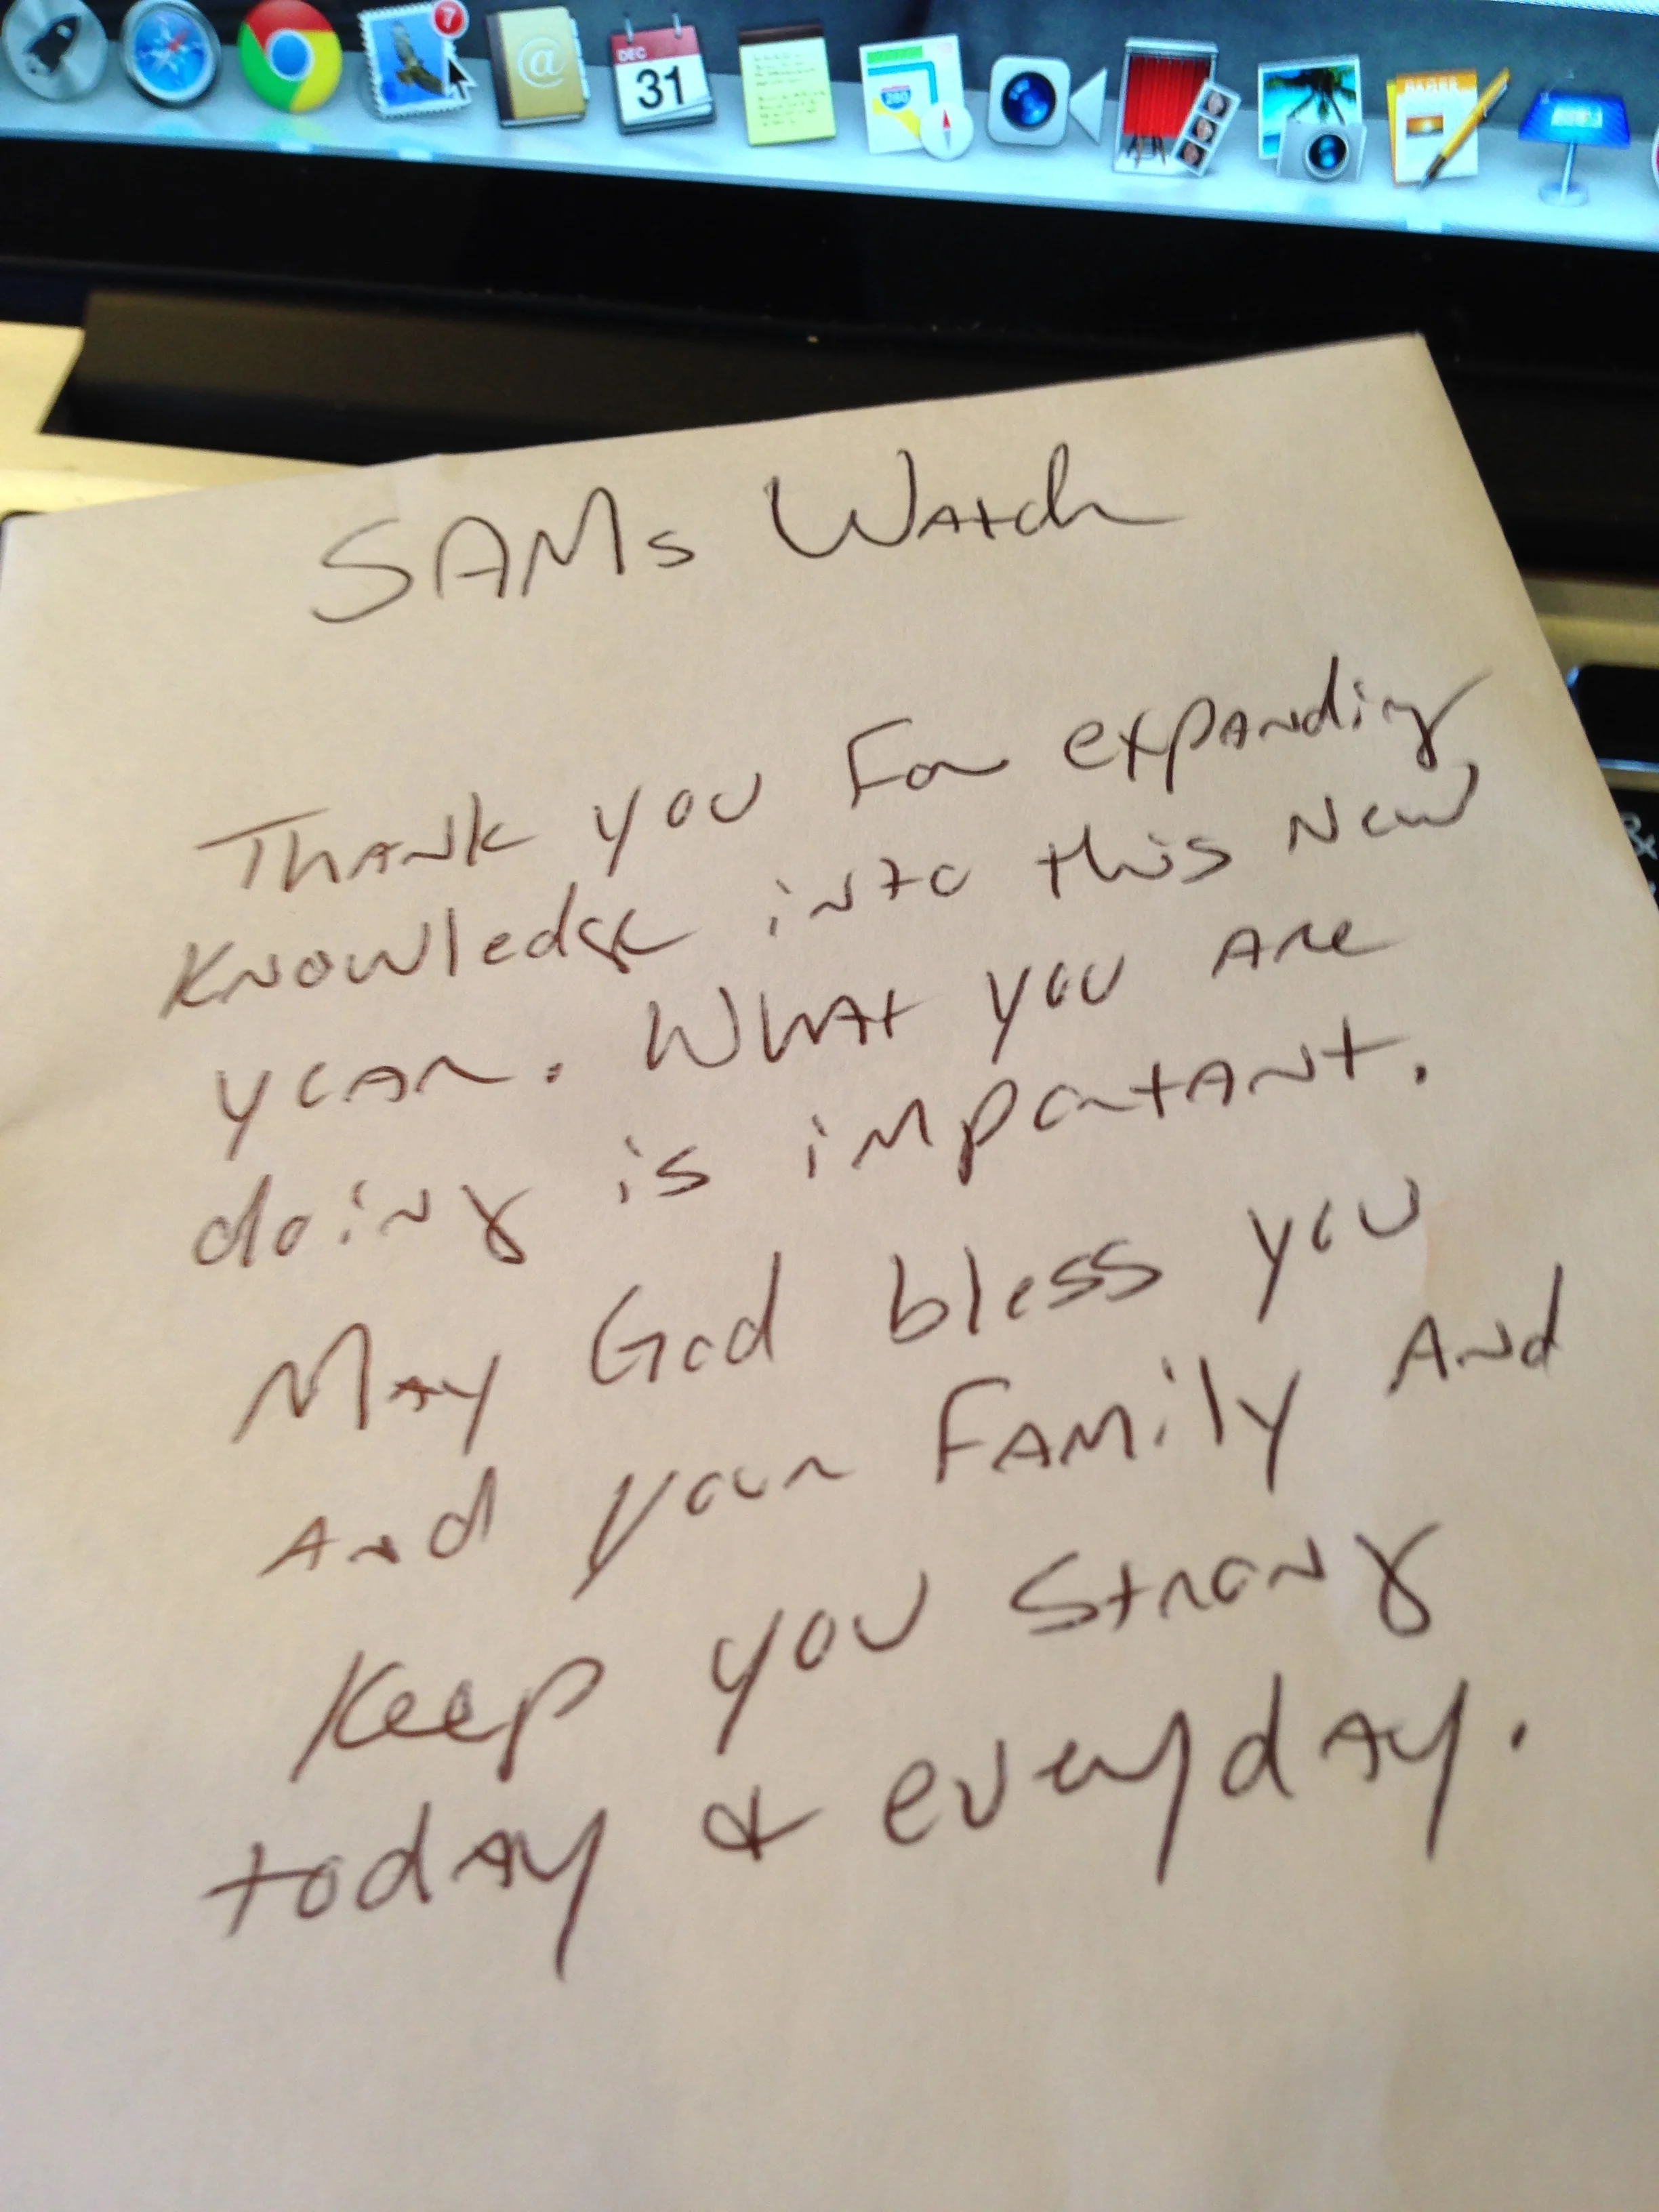 7
@
DEC
31
280
SAMs Watch
Thank you For expanding
Knowledge into this New
year. What you are
doing is important.
May God bless you
And your Family And
Keep you Strong
today & everyday.
&